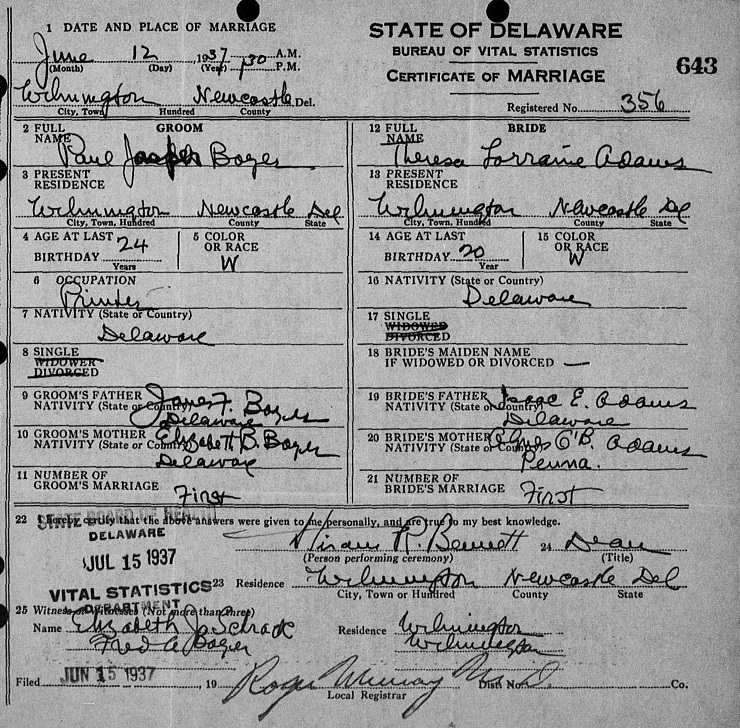 1 DATE AND PLACE OF MARRIAGE
June 12, 1937 1:30 A.M. P.M.
(Month) (Day) (Year)
Wilmington Newcastle Del.
City, Town Hundred County
STATE OF DELAWARE
BUREAU OF VITAL STATISTICS
CERTIFICATE OF MARRIAGE
643
Registered No. 356
2 FULL NAME GROOM
Paul Jasper Boyer
3 PRESENT RESIDENCE
Wilmington Newcastle Del
City, Town, Hundred County State
4 AGE AT LAST BIRTHDAY 24 Years
5 COLOR OR RACE W
6 OCCUPATION
Printer
7 NATIVITY (State or Country)
Delaware
8 SINGLE
WIDOWER
DIVORCED
9 GROOM'S FATHER James F. Boyer
NATIVITY (State or Country) Delaware
10 GROOM'S MOTHER Elizabeth B. Boyer
NATIVITY (State or Country) Delaware
11 NUMBER OF GROOM'S MARRIAGE
First
12 FULL NAME BRIDE
Theresa Lorraine Adams
13 PRESENT RESIDENCE
Wilmington Newcastle Del
City, Town, Hundred County State
14 AGE AT LAST BIRTHDAY 20 Year
15 COLOR OR RACE W
16 NATIVITY (State or Country)
Delaware
17 SINGLE
WIDOWED
DIVORCED
18 BRIDE'S MAIDEN NAME
IF WIDOWED OR DIVORCED —
19 BRIDE'S FATHER Isaac E. Adams
NATIVITY (State or Country) Delaware
20 BRIDE'S MOTHER Agnes O'B. Adams
NATIVITY (State or Country) Penna.
21 NUMBER OF BRIDE'S MARRIAGE
First
22 I hereby certify that the above answers were given to me personally, and are true to my best knowledge.
STATE BOARD OF HEALTH
DELAWARE
JUL 15 1937
VITAL STATISTICS
DEPARTMENT
Hiram R Bennett 24 Dean
(Person performing ceremony) (Title)
23 Residence Wilmington Newcastle Del
City, Town or Hundred County State
25 Witness or Witnesses (Not more than three)
Name Elizabeth J. Schrack Residence Wilmington
Fred A Boyer Wilmington
Filed JUN 15 1937 19 Roger Murray M.D. Dist No. Co.
Local Registrar